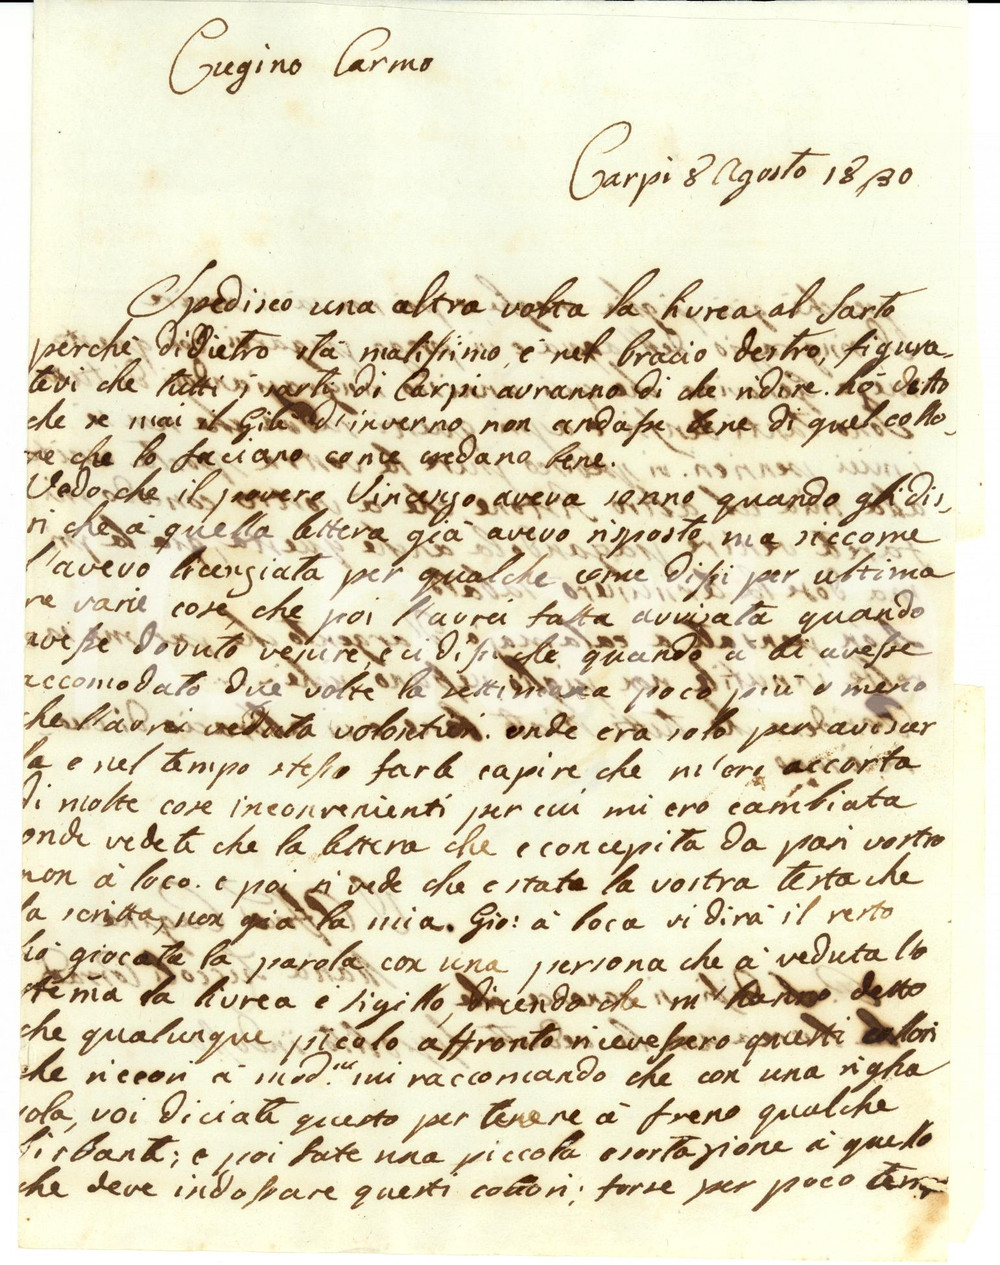 Cugino Carmo
Carpi 8 Agosto 1830
Spedisco una altra volta la livrea al Sarto
perchè didietro stà malissimo, e nel bracio destro, figura-
tevi che tutti i sarti di Carpi avranno di che ridire. hò detto
che se mai il Gilè d'inverno non andasse bene di quel collo-
re che lo faciano come credano bene.
Vedo che il povero Vincenzo aveva sonno quando gli dis-
si, che à quella lettera già avevo risposto, ma siccome
l'avevo licenziata per qualche come dissi per ultima
re varie cose, che poi l'aurei fatta avvisata quando
avesse dovuto venire, e ci dissi che quando a lei avesse
accomodato due volte la settimana poco più o meno
che l'aurei veduta volontieri. onde era solo per avisar
la e nel tempo stesso farle capire che m'ero accorta
di molte cose inconvenienti per cui mi ero cambiata
onde vedete che la lettera che e concepita da pari vostro
non à loco. e poi si vede che e stata la vostra testa che
la scritta, non già la mia. Gio: à loca vi dirà il resto
hò giocata la parola con una persona che à veduta lo
stema la livrea e sigillo, dicendo che m'hanno detto
che qualunque picolo affronto ricevessero questi collori
che ricori à mi raccomando che con una righa
sola, voi diciate questo per tenere à freno qualche
birbante; e poi fate una piccola esortazione à quello
che deve indossare questi collori; forse per poco